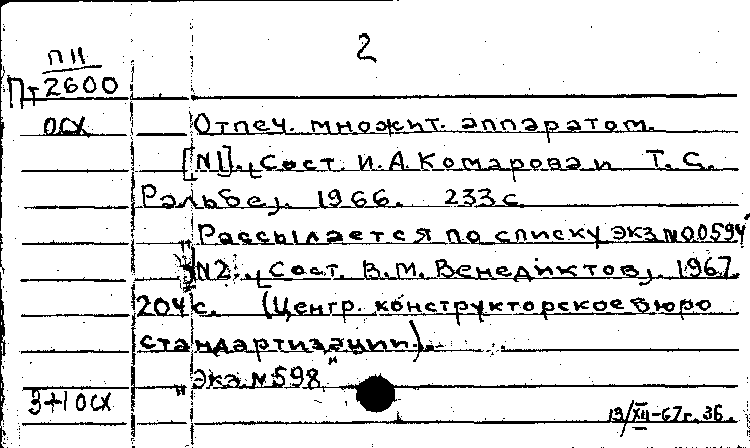 2
П II
Пт 2600
ОСХ
Отпеч. множит. аппаратом.
[N1]. [Сост. И.А. Комарова и Т.С.
Ральбе]. 1966. 233 с.
"Рассылается по списку экз. № 00594"
N2. [Сост. В.М. Венедиктов]. 1967.
204 с. (Центр. конструкторское бюро
стандартизации).
"Экз. № 598"
3+1 ОСХ
19/XII-67 г. ЗБ.